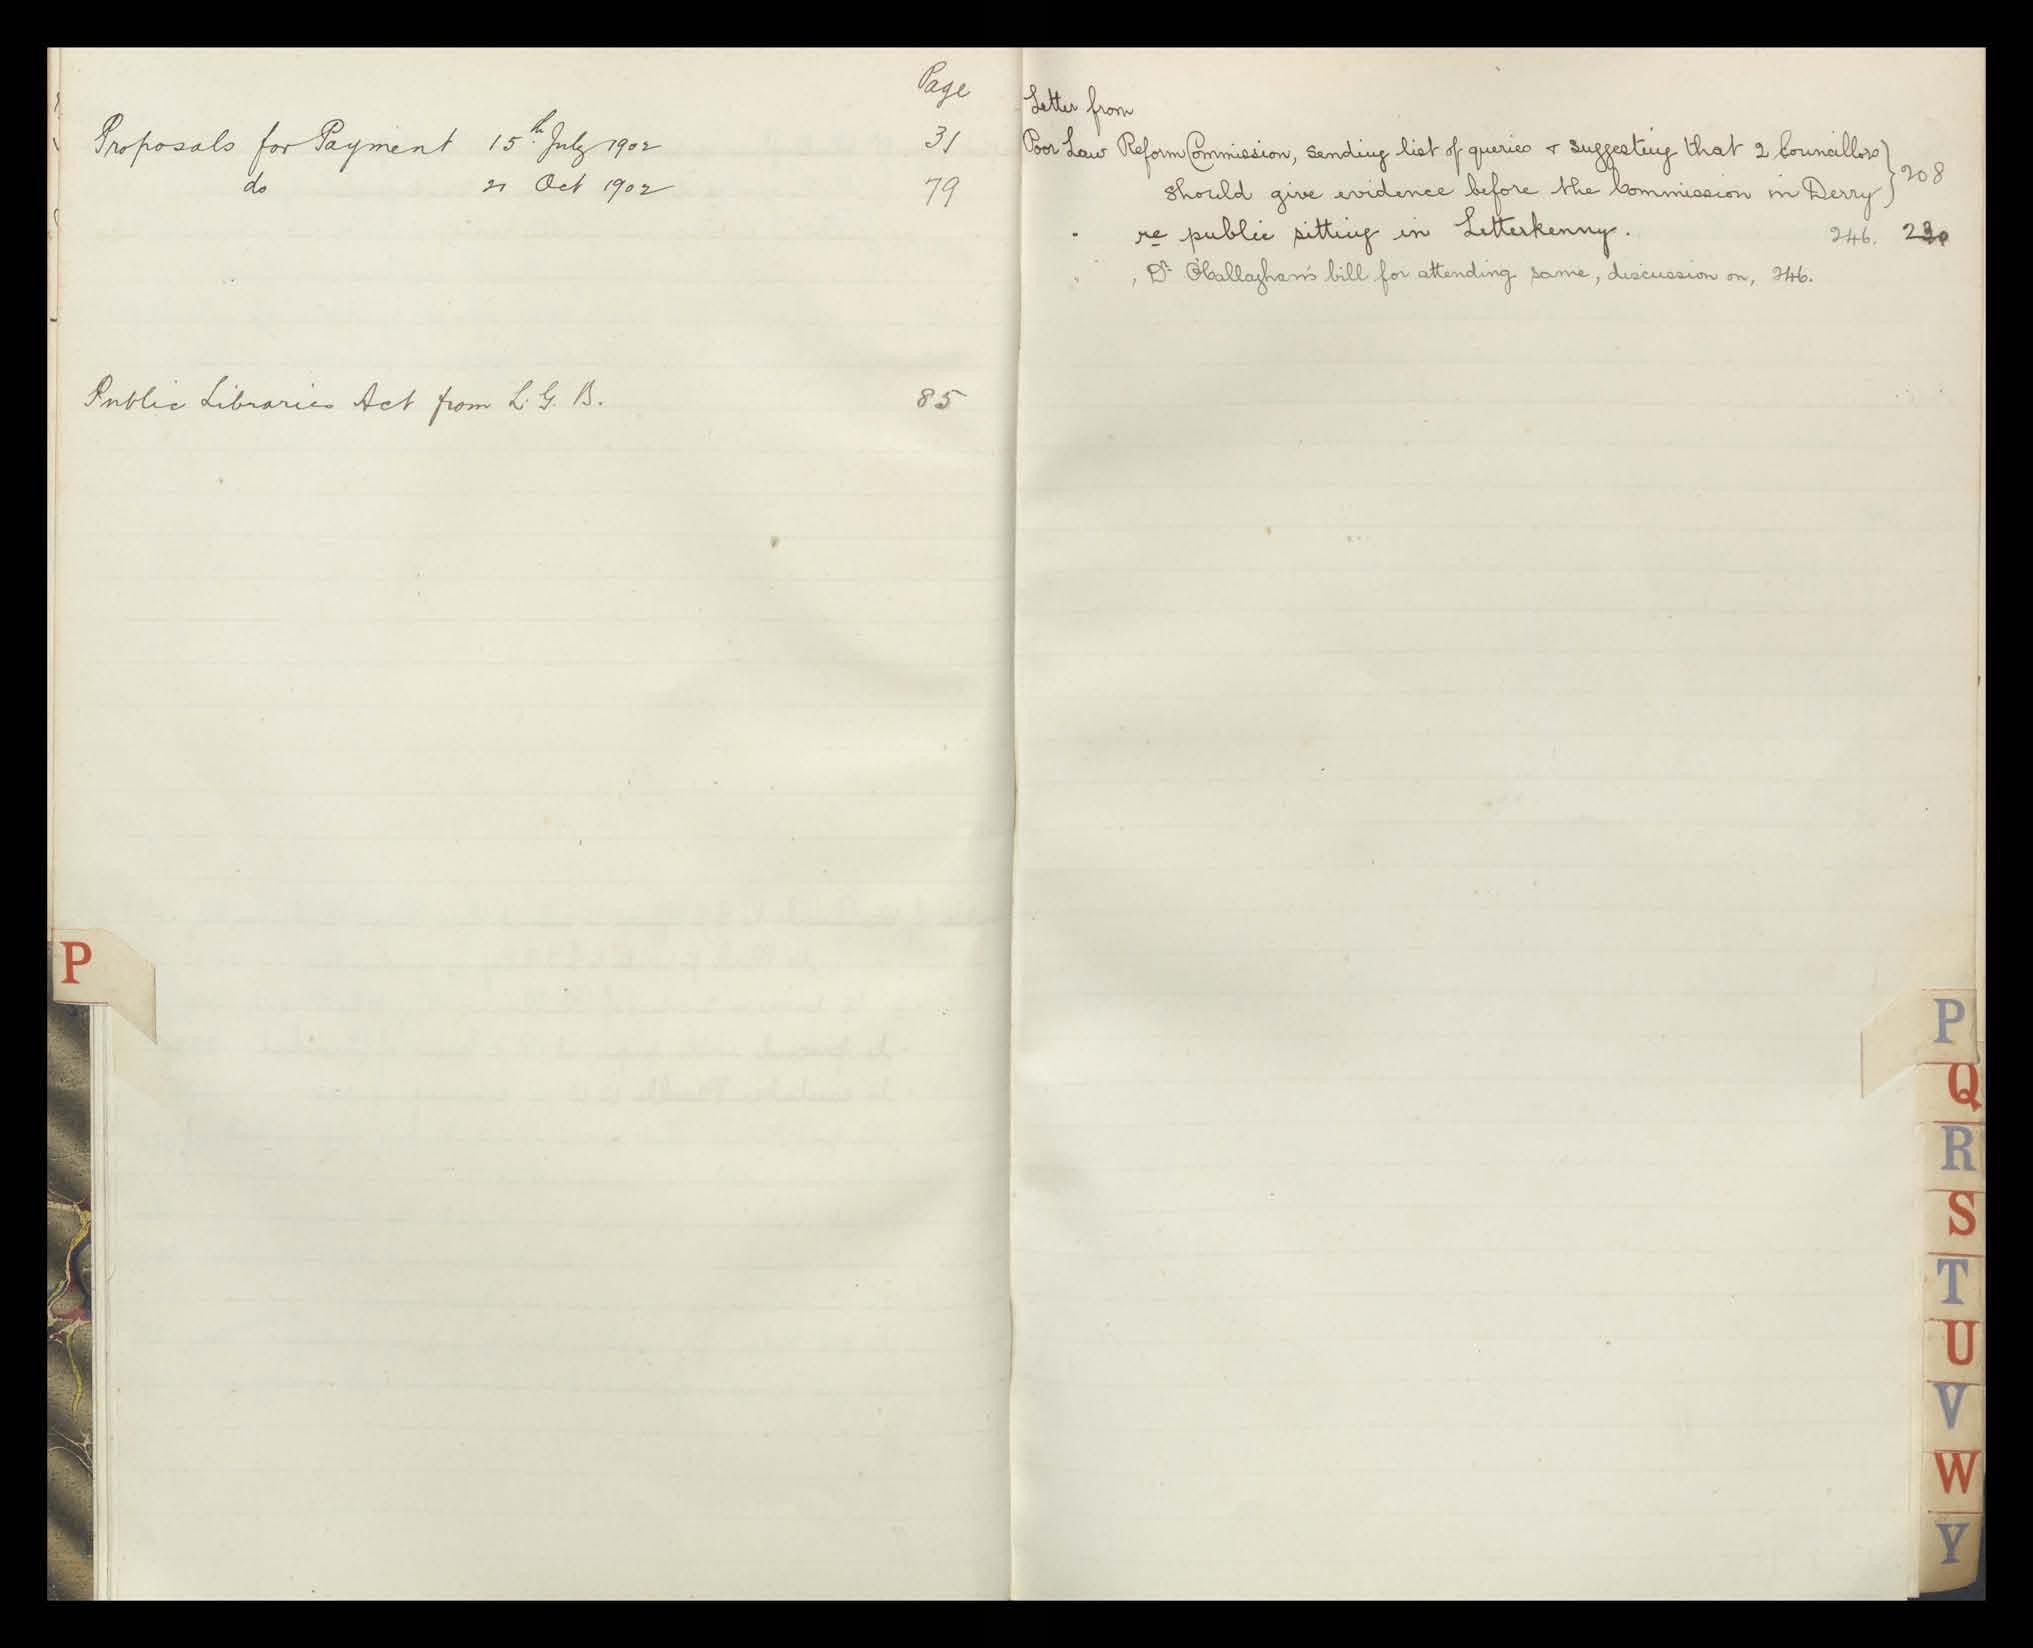 Page
Proposals for Payment 15th July 1902 31
do 21 Oct 1902 79
Public Libraries Act from L. G. B. 85
P
Letter from
Poor Law Reform Commission, sending list of queries & suggesting that 2 Councillors
should give evidence before the Commission in Derry 208
" re public sitting in Letterkenny. 246. 230
" , Dr O'Callaghan's bill for attending same, discussion on, 246.
P
Q
R
S
T
U
V
W
Y